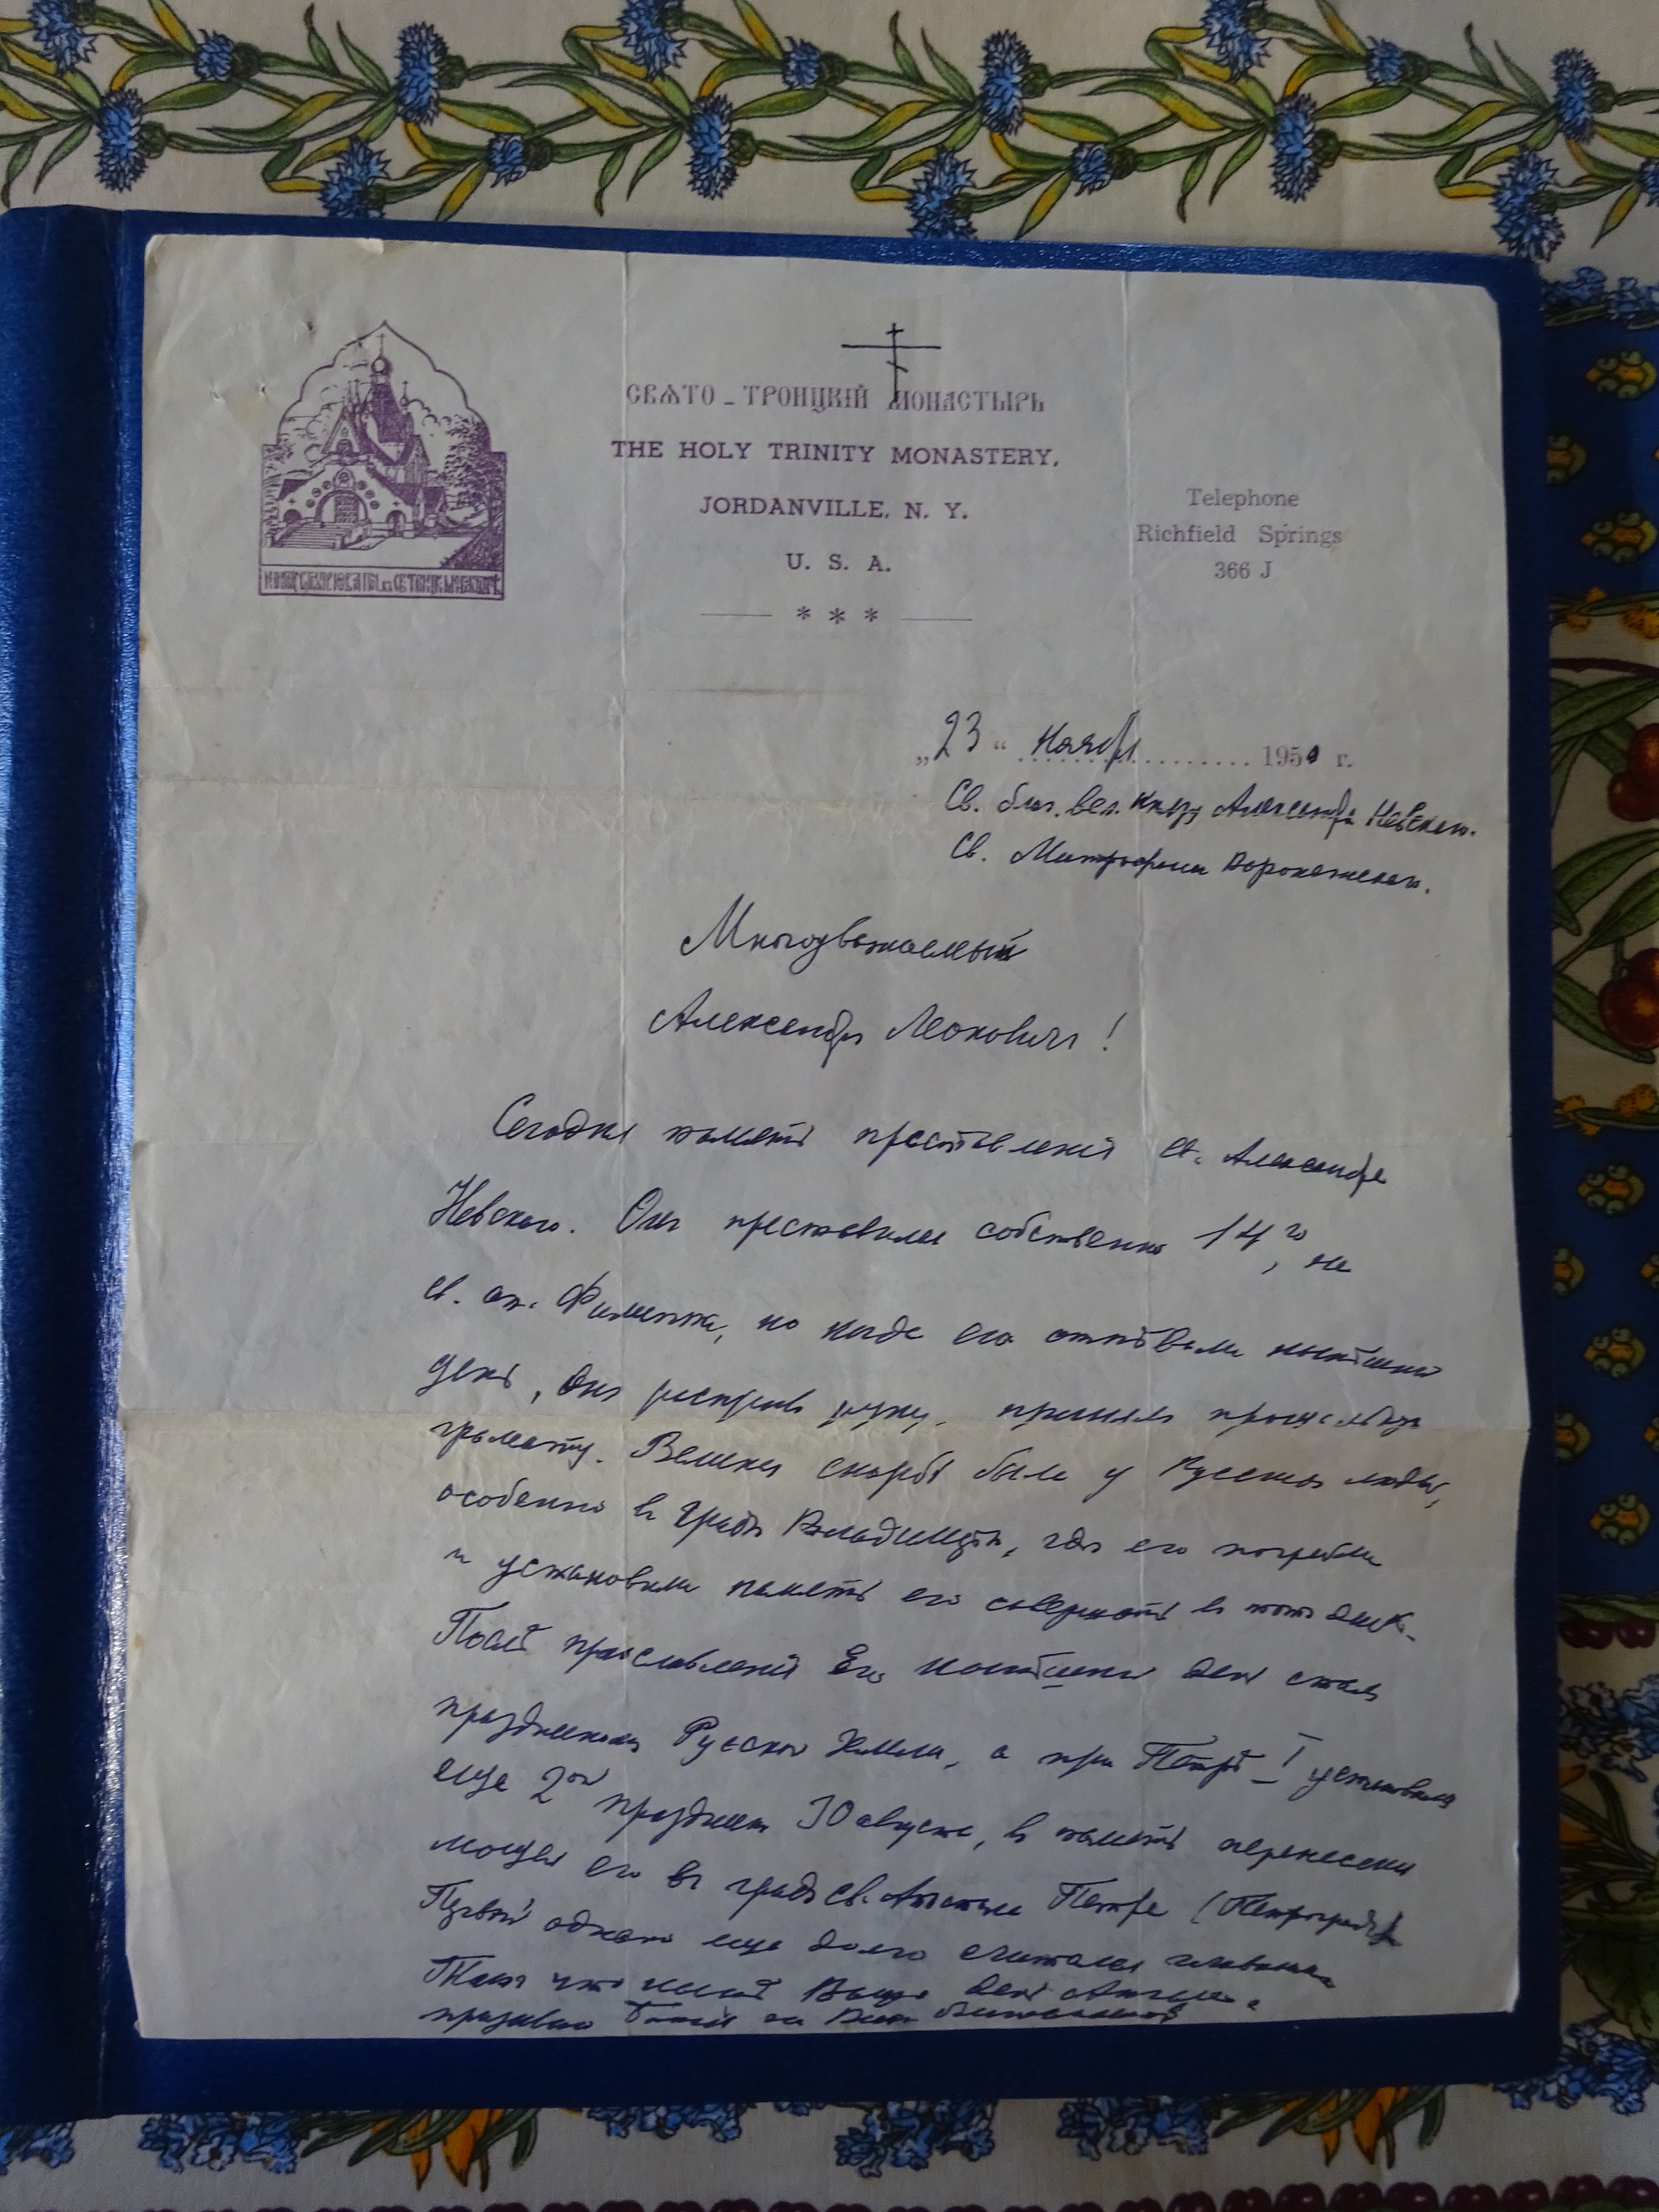 СВѦТО - ТРОИЦКІЙ МОНАСТЫРЬ
THE HOLY TRINITY MONASTERY,
JORDANVILLE, N. Y.
U. S. A.
* * *
Telephone
Richfield Springs
366 J
„23“ Ноября 1950 г.
Св. благ. вел. Князя Александра Невскаго.
Св. Митрофана Воронежскаго.
Многоуважаемый
Александръ Леоновичъ!
Сегодня память преставленія св. Александра
Невскаго. Онъ преставился собственно 14го, на
св. ап. Филиппа, но когда его отпѣвали нынѣшній
день, Онъ распростр руку, принялъ прощальную
грамоту. Велика скорбь была у Русскихъ людей,
особенно въ градѣ Владимірѣ, гдѣ его погребли
и установили память его совершать въ тотъ день.
Послѣ прославленія Его нынѣшній день сталъ
праздникомъ Русской Земли, а при Петрѣ I установили
еще 2ой праздникъ 30 августа, въ память перенесенія
мощей его въ градъ св. Апостола Петра (Петроградъ)
Первый однако еще долго считался главнымъ
Такъ что нынѣ Вашъ день Ангела.
призываю Божіе на Васъ благословеніе